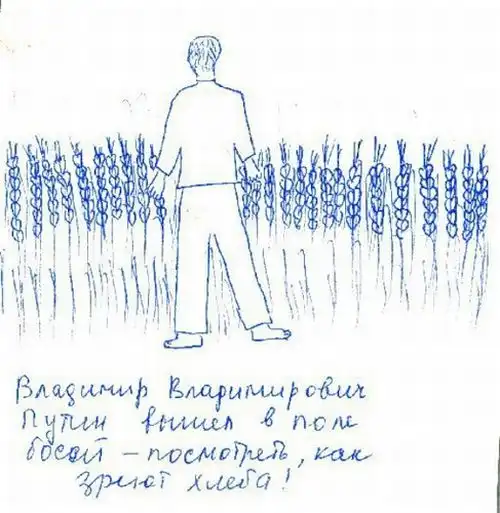 Владимир Владимирович
Путин вышел в поле
босой – посмотреть, как
зреют хлеба!